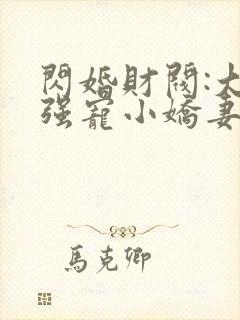 閃婚財閥:大
强寵小嬌妻
馬克卿